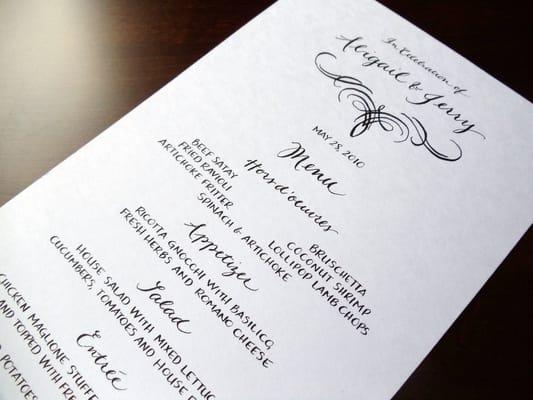 In Celebration of
Abigail & Jerry
MAY 28, 2010
Menu
Hors d'oeuvres
BEEF SATAY
FRIED RAVIOLI
ARTICHOKE FRITTER
BRUSCHETTA
COCONUT SHRIMP
LOLLIPOP LAMB CHOPS
SPINACH & ARTICHOKE
Appetizer
RICOTTA GNOCCHI WITH BASIL
FRESH HERBS AND ROMANO CHEESE
Salad
HOUSE SALAD WITH MIXED LETTUC
CUCUMBERS, TOMATOES AND HOUSE
Entrée
CHICKEN MAGLIONE STUFFE
AND TOPPED WITH FRE
POTATOES